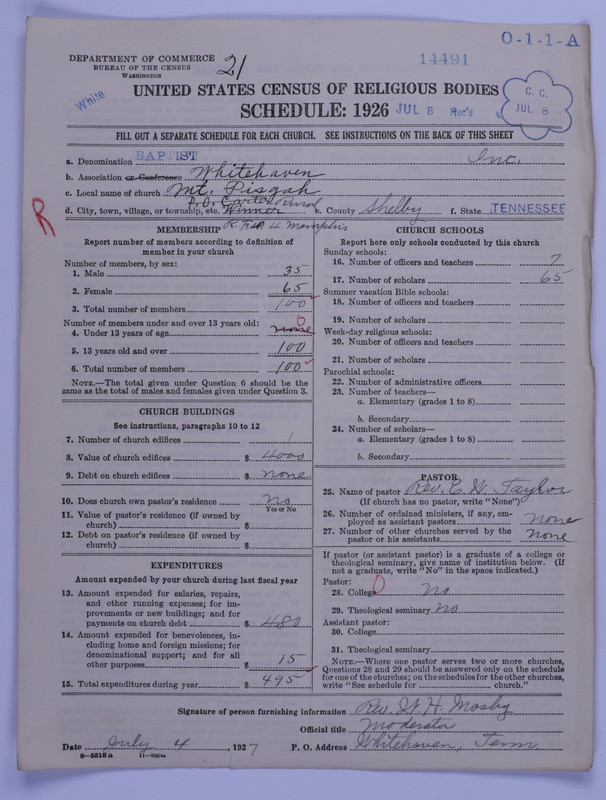 O-1-1-A
14491
DEPARTMENT OF COMMERCE
BUREAU OF THE CENSUS
WASHINGTON
21
White
UNITED STATES CENSUS OF RELIGIOUS BODIES
SCHEDULE: 1926 JUL 8 Rec'd
C. C.
JUL 8
FILL OUT A SEPARATE SCHEDULE FOR EACH CHURCH. SEE INSTRUCTIONS ON THE BACK OF THIS SHEET
a. Denomination BAPTIST Inc.
b. Association or Conference Whitehaven
c. Local name of church Mt. Pisgah
P.O.
d. City, town, village, or township, etc. e. County Shelby f. State TENNESSEE
R
4 Memphis
MEMBERSHIP
Report number of members according to definition of
member in your church
Number of members, by sex:
1. Male 35
2. Female 65
3. Total number of members 100
Number of members under and over 13 years old: 0
4. Under 13 years of age none
5. 13 years old and over 100
6. Total number of members 100
NOTE.—The total given under Question 6 should be the
same as the total of males and females given under Question 3.
CHURCH BUILDINGS
See instructions, paragraphs 10 to 12
7. Number of church edifices 1
8. Value of church edifices $ 4000
9. Debt on church edifices $ none
10. Does church own pastor's residence No
Yes or No
11. Value of pastor's residence (if owned by
church) $
12. Debt on pastor's residence (if owned by
church) $
EXPENDITURES
Amount expended by your church during last fiscal year
13. Amount expended for salaries, repairs,
and other running expenses; for im-
provements or new buildings; and for
payments on church debt $ 480
14. Amount expended for benevolences, in-
cluding home and foreign missions; for
denominational support; and for all
other purposes $ 15
15. Total expenditures during year $ 495
CHURCH SCHOOLS
Report here only schools conducted by this church
Sunday schools:
16. Number of officers and teachers 7
17. Number of scholars 65
Summer vacation Bible schools:
18. Number of officers and teachers
19. Number of scholars
Week-day religious schools:
20. Number of officers and teachers
21. Number of scholars
Parochial schools:
22. Number of administrative officers
23. Number of teachers—
a. Elementary (grades 1 to 8)
b. Secondary
24. Number of scholars—
a. Elementary (grades 1 to 8)
b. Secondary
PASTOR
25. Name of pastor Rev. E. W. Taylor
(If church has no pastor, write "None")
26. Number of ordained ministers, if any, em-
ployed as assistant pastors none
27. Number of other churches served by the
pastor or his assistants none
If pastor (or assistant pastor) is a graduate of a college or
theological seminary, give name of institution below. (If
not a graduate, write "No" in the space indicated.)
Pastor: 0
28. College No
29. Theological seminary No
Assistant pastor:
30. College
31. Theological seminary
NOTE.—Where one pastor serves two or more churches,
Questions 28 and 29 should be answered only on the schedule
for one of the churches; on the schedules for the other churches,
write "See schedule for church."
Signature of person furnishing information Rev. W. H. Mosby
Official title Moderator
Date July 4, 1927 P. O. Address Whitehaven, Tenn
8-5518a 11-9264a